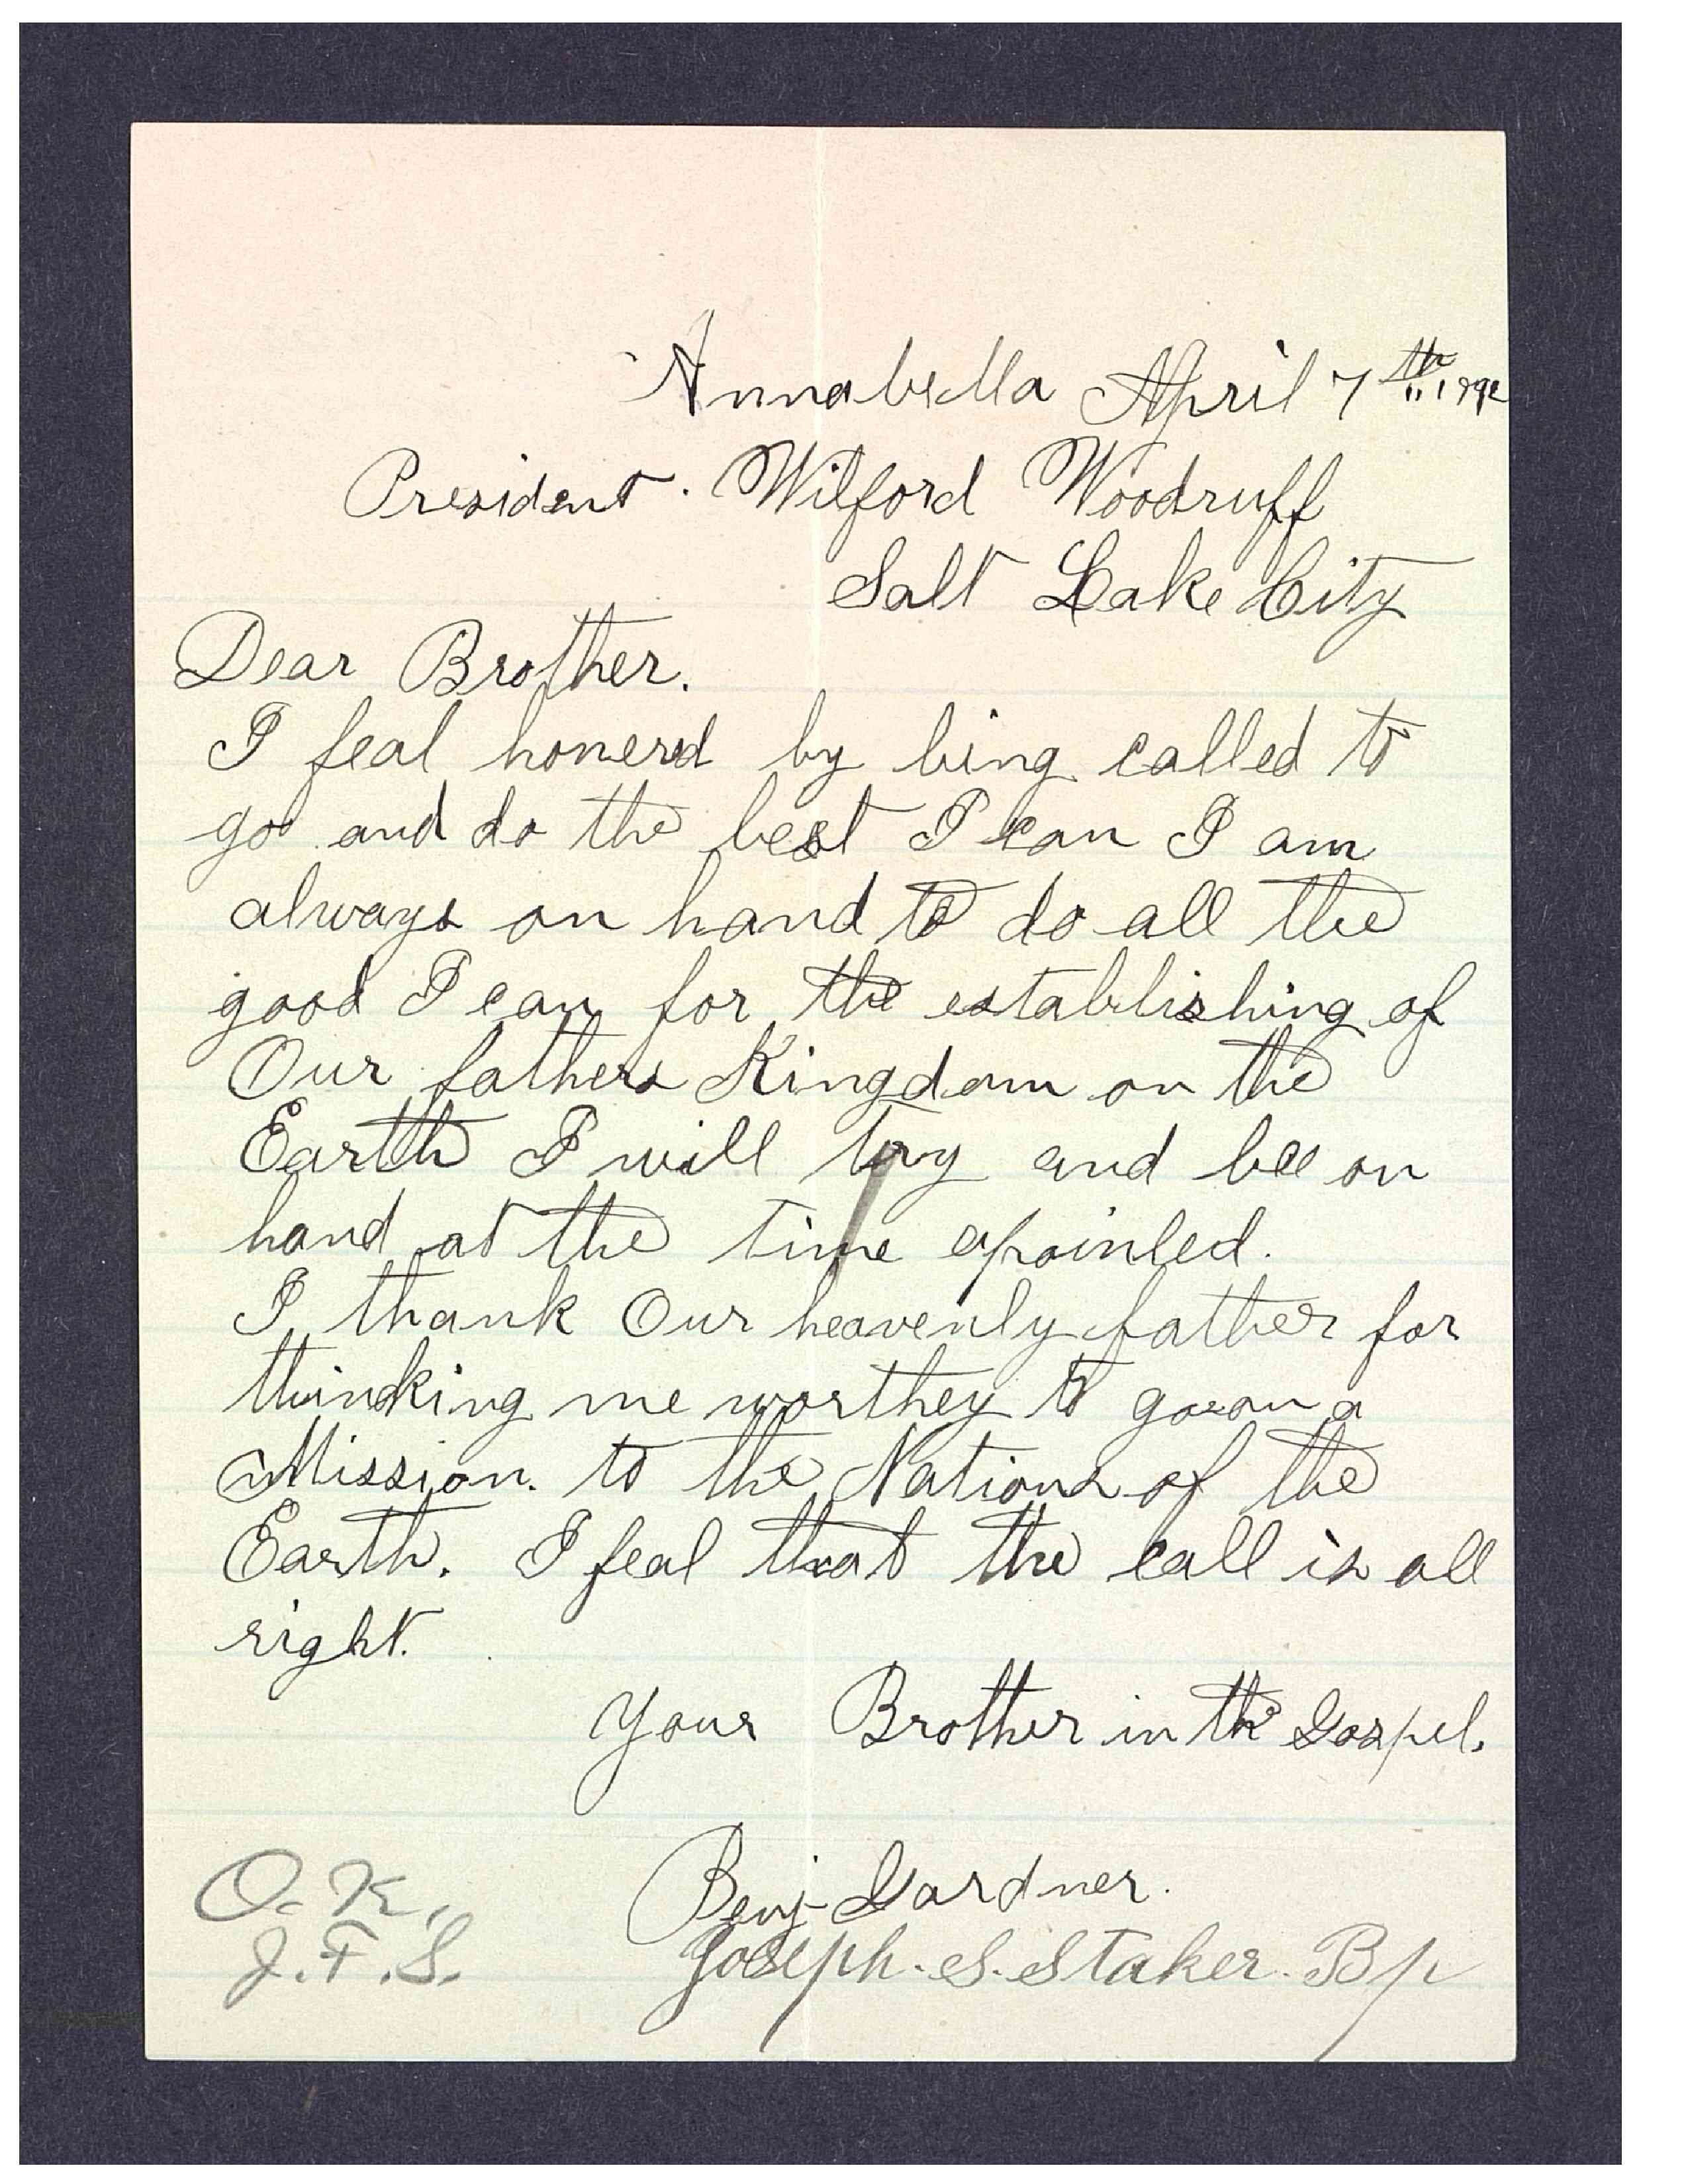 Annabella April 7th 1892
President. Wilford Woodruff
Salt Lake City
Dear Brother.
I feal honered by bing called to
go and do the best I can I am
always on hand to do all the
good I can for the establishing of
Our fathers Kingdom on the
Earth I will try and bee on
hand at the time apointed.
I thank Our heavenly father for
thinking me worthey to go on a
Mission. to the Nations of the
Earth. I feal that the call is all
right.
Your Brother in the Gospel.
Benj Gardner.
Joseph. S. Staker. Bp
O. K.
J. F. S.